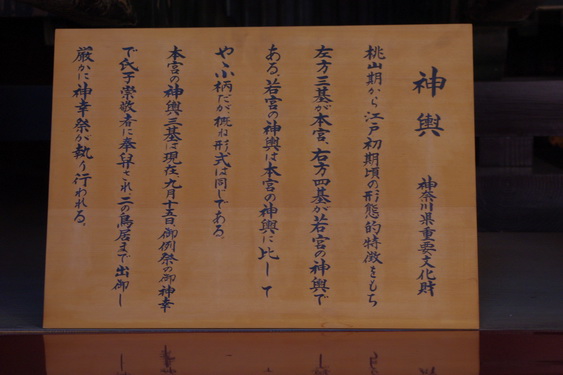 神輿　神奈川県重要文化財
桃山期から江戸初期頃の形態的特徴をもち
左方三基が本宮、右方四基が若宮の神輿で
ある。若宮の神輿は本宮の神輿に比して
やや小柄だが概ね形式は同じである。
本宮の神輿三基は現在九月十五日御例祭の御神幸
で氏子崇敬者に奉舁され二の鳥居まで出御し
厳かに神幸祭が執り行われる。